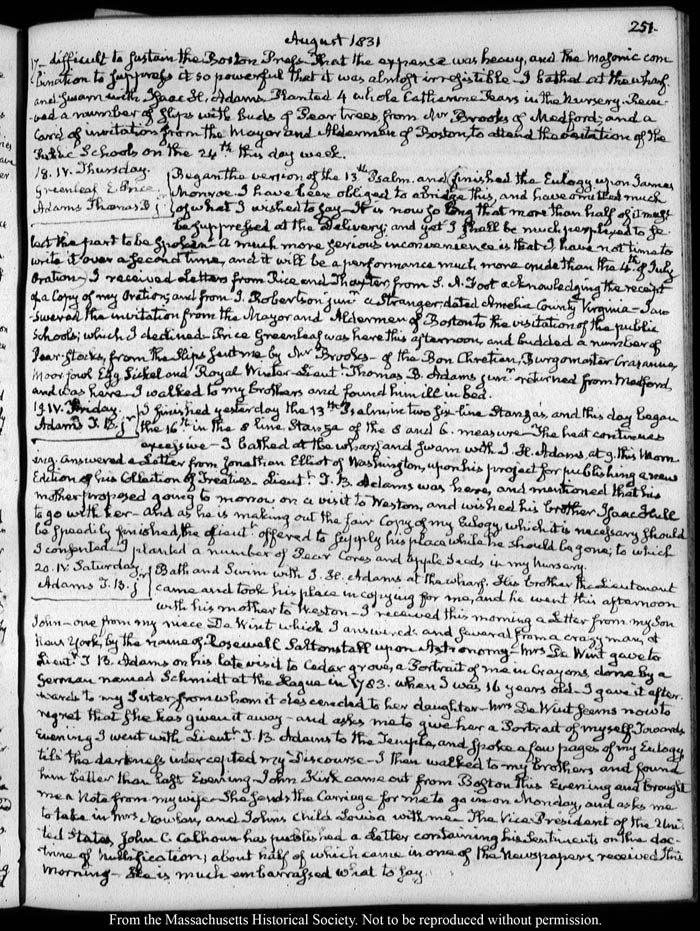 251.
August 1831
17— difficult to sustain the Boston Press. That the expense was heavy, and the Masonic com
bination to suppress it so powerful that it was almost irresistible— I bathed at the wharf
and swam with Isaac H. Adams. Planted 4 whole Catherine Pears in the Nursery. Recei-
ved a number of slips with buds of Pear trees from Mr Brooks of Medford; and a
Card of invitation from the Mayor and Aldermen of Boston, to attend the visitation of the
Public Schools on the 24th this day week.
18. IV. Thursday.
Greenleaf E. Price
Adams Thomas B. jr
Began the version of the 13th Psalm. and finished the Eulogy upon James
Monroe. I have been obliged to abridge this, and have omitted much
of what I wished to say— It is now so long that more than half of it must
be suppressed at the Delivery; and yet I shall be much perplexed to se-
lect the part to be spoken— A much more serious inconvenience is that I have not time to
write it over a second time, and it will be a performance much more crude than the 4th of July
Oration— I received Letters from Rice and Thaxter from S. A. Foot acknowledging the receipt
of a copy of my Oration; and from J. Robertson junr a Stranger dated Amelia County Virginia— I an-
swered the invitation from the Mayor and Aldermen of Boston to the visitation of the public
Schools; which I declined— Price Greenleaf was here this afternoon, and budded a number of
Pear-stocks, from the slips sent me by Mr Brooks— of the Bon Chretien, Burgomaster
Moorfowl Egg Seckel and Royal Winter— Lieut Thomas B. Adams junr returned from Medford,
and was here— I walked to my brothers and found him ill in bed.
19. IV. Friday.
Adams T. B. jr
I finished yesterday the 13th Psalm in two six-line Stanzas, and this day began
the 16th in the 8 line Stanza of the 8 and 6. measure— The heat continues
excessive— I bathed at the wharf and swam with I. H. Adams, at 9. this Morn
ing. answered a Letter from Jonathan Elliot of Washington, upon his project for publishing a new
Edition of his Collection of Treaties— Lieut T. B. Adams was here, and mentioned that his
mother proposed going to morrow on a visit to Weston, and wished his brother Isaac Hull
to go with her— And as he is making out the fair Copy of my Eulogy, which it is necessary should
be speedily finished, the Lieut offered to supply his place while he should be gone; to which
I consented— I planted a number of Pear Cores and Apple seeds in my Nursery.
20. IV. Saturday.
Adams T. B. jr
Bath and Swim with I. H. Adams at the wharf. His brother the Lieutenant
came and took his place in copying for me, and he went this afternoon
with his mother to Weston— I received this morning a Letter from my Son
John— one from my niece De Wint which I answered— and several from a crazy man, at
New York, by the name of Rosewell Saltonstall upon Astronomy— Mrs De Wint gave to
Lieut T. B. Adams on his late visit to Cedar grove, a Portrait of me in Crayons, done by a
German named Schmidt at the Hague in 1783. when I was 16 years old— I gave it after-
wards to my Sister from whom it descended to her daughter— Mrs De Wint seems now to
regret that she has given it away— and asks me to give her a Portrait of myself. Towards
Evening I went with Lieut T. B. Adams to the Temple, and spoke a few pages of my Eulogy,
till the darkness intercepted my Discourse— I then walked to my brothers and found
him better than last Evening— John Kirk came out from Boston this Evening and brought
me a Note from my wife— She sends the Carriage for me to go in on Monday, and asks me
to take in Mrs Nowlan, and Johns child Louisa with me— The Vice President of the Uni-
ted States, John C. Calhoun has published a Letter containing his Sentiments on the doc-
trine of Nullification; about half of which came in one of the Newspapers received this
morning— He is much embarrassed what to say.
From the Massachusetts Historical Society. Not to be reproduced without permission.